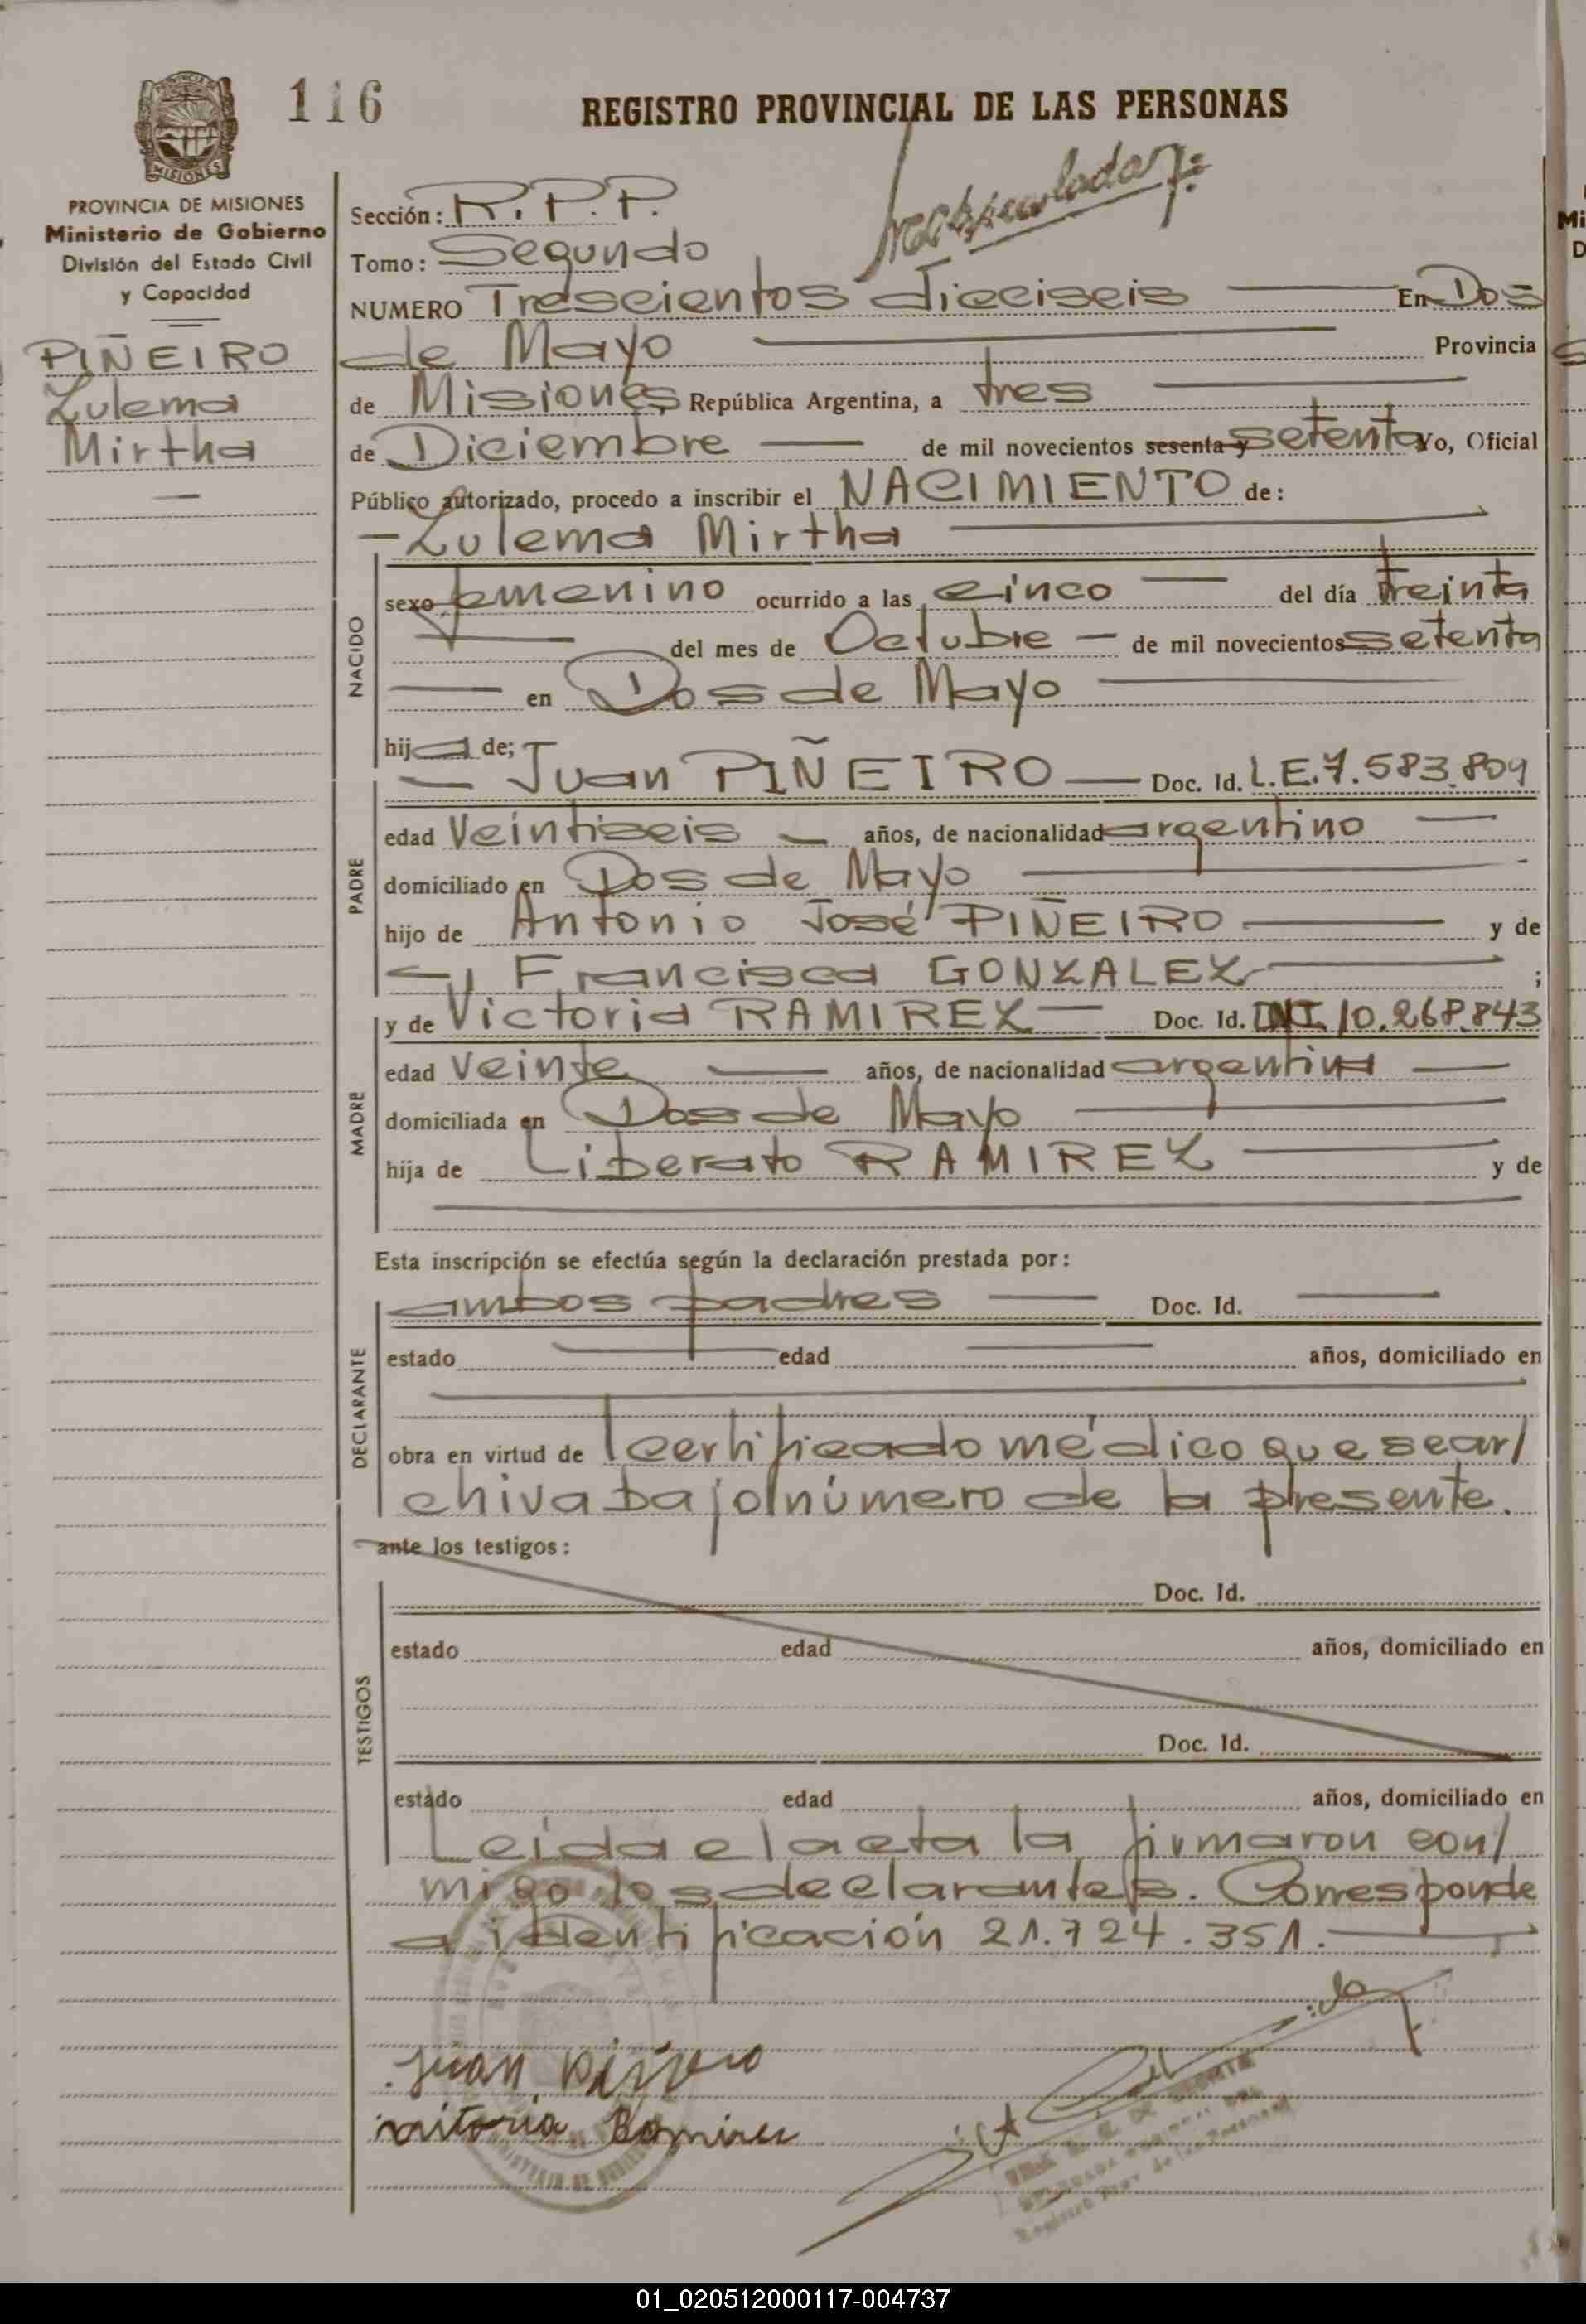 116
REGISTRO PROVINCIAL DE LAS PERSONAS
PROVINCIA DE MISIONES
MISIONES
PROVINCIA DE MISIONES
Ministerio de Gobierno
División del Estado Civil
y Capacidad
PIÑEIRO
Zulema
Mirtha
Sección: R.P.P.
Tomo: Segundo
NUMERO Trescientos dieciseis En Dos
de Mayo Provincia
de Misiones República Argentina, a tres
de Diciembre de mil novecientos sesenta y setenta Yo, Oficial
Público autorizado, procedo a inscribir el NACIMIENTO de:
Zulema Mirtha
NACIDO
sexo femenino ocurrido a las cinco del día treinta
del mes de Octubre de mil novecientos setenta
en Dos de Mayo
hija de;
PADRE
Juan PIÑEIRO Doc. Id. L.E.7.583.809
edad Veintiseis años, de nacionalidad argentino
domiciliado en Dos de Mayo
hijo de Antonio José PIÑEIRO y de
Francisca GONZALEZ ;
MADRE
y de Victoria RAMIREZ Doc. Id. DNI. 10.268.843
edad Veinte años, de nacionalidad argentina
domiciliada en Dos de Mayo
hija de Liberato RAMIREZ y de
Esta inscripción se efectúa según la declaración prestada por:
DECLARANTE
ambos padres Doc. Id.
estado edad años, domiciliado en
obra en virtud de certificado médico que se ar/
chiva bajo número de la presente.
ante los testigos:
TESTIGOS
Doc. Id.
estado edad años, domiciliado en
Doc. Id.
estado edad años, domiciliado en
Leida el acta la firmaron con/
migo los declarantes. Corresponde
a identificación 21.724.351.
Juan Piñeiro
vitoria Ramires
01_020512000117-004737